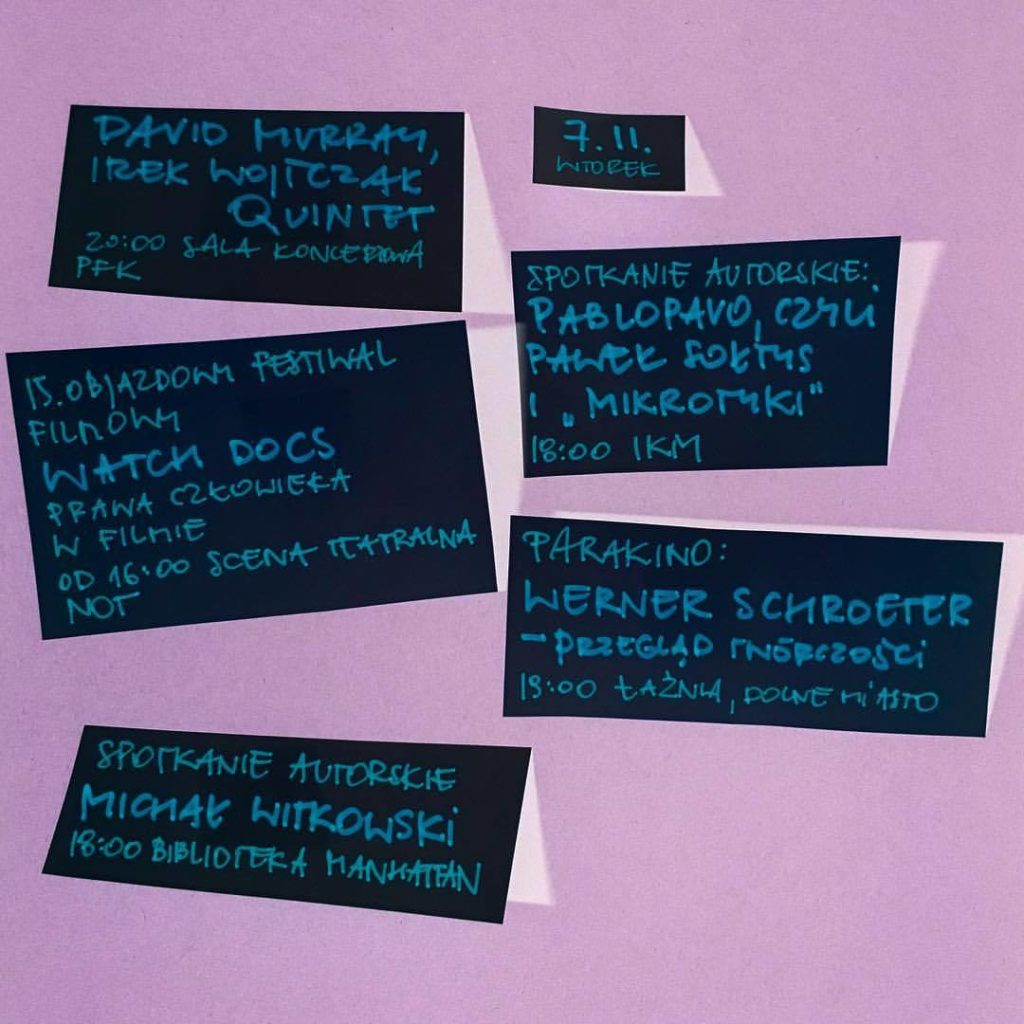 DAVID MURRAY,
IREK WOJTCZAK
QUINTET
20:00 SALA KONCERTOWA
PFK
7.11.
WTOREK
SPOTKANIE AUTORSKIE:
PABLOPAVO, CZYLI
PAWEŁ SOŁTYS
I „MIKROTYKI"
18:00 IKM
15. OBJAZDOWY FESTIWAL
FILMOWY
WATCH DOCS
PRAWA CZŁOWIEKA
W FILMIE
OD 16:00 SCENA TEATRALNA
NOT
PARAKINO:
WERNER SCHROETER
- PRZEGLĄD TWÓRCZOŚCI
ŁAŹNIA, DOLNE MIASTO
SPOTKANIE AUTORSKIE
MICHAŁ WITKOWSKI
18:00 BIBLIOTEKA MANHATTAN